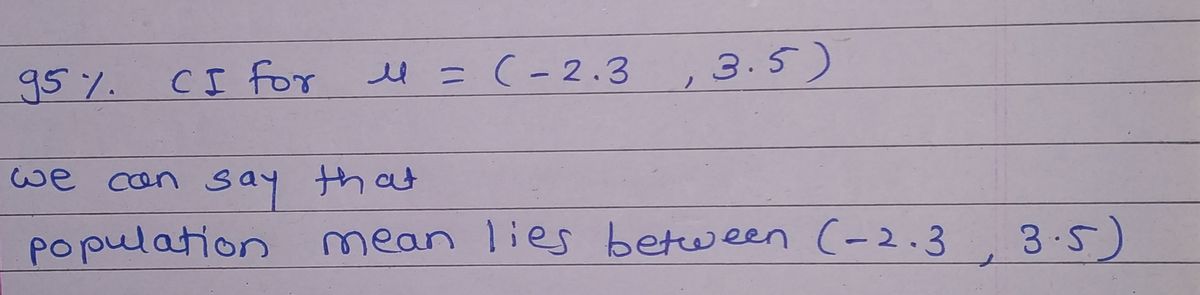 95 %. CI for μ = (-2.3 , 3.5)
we can say that
population mean lies between (-2.3 , 3.5)